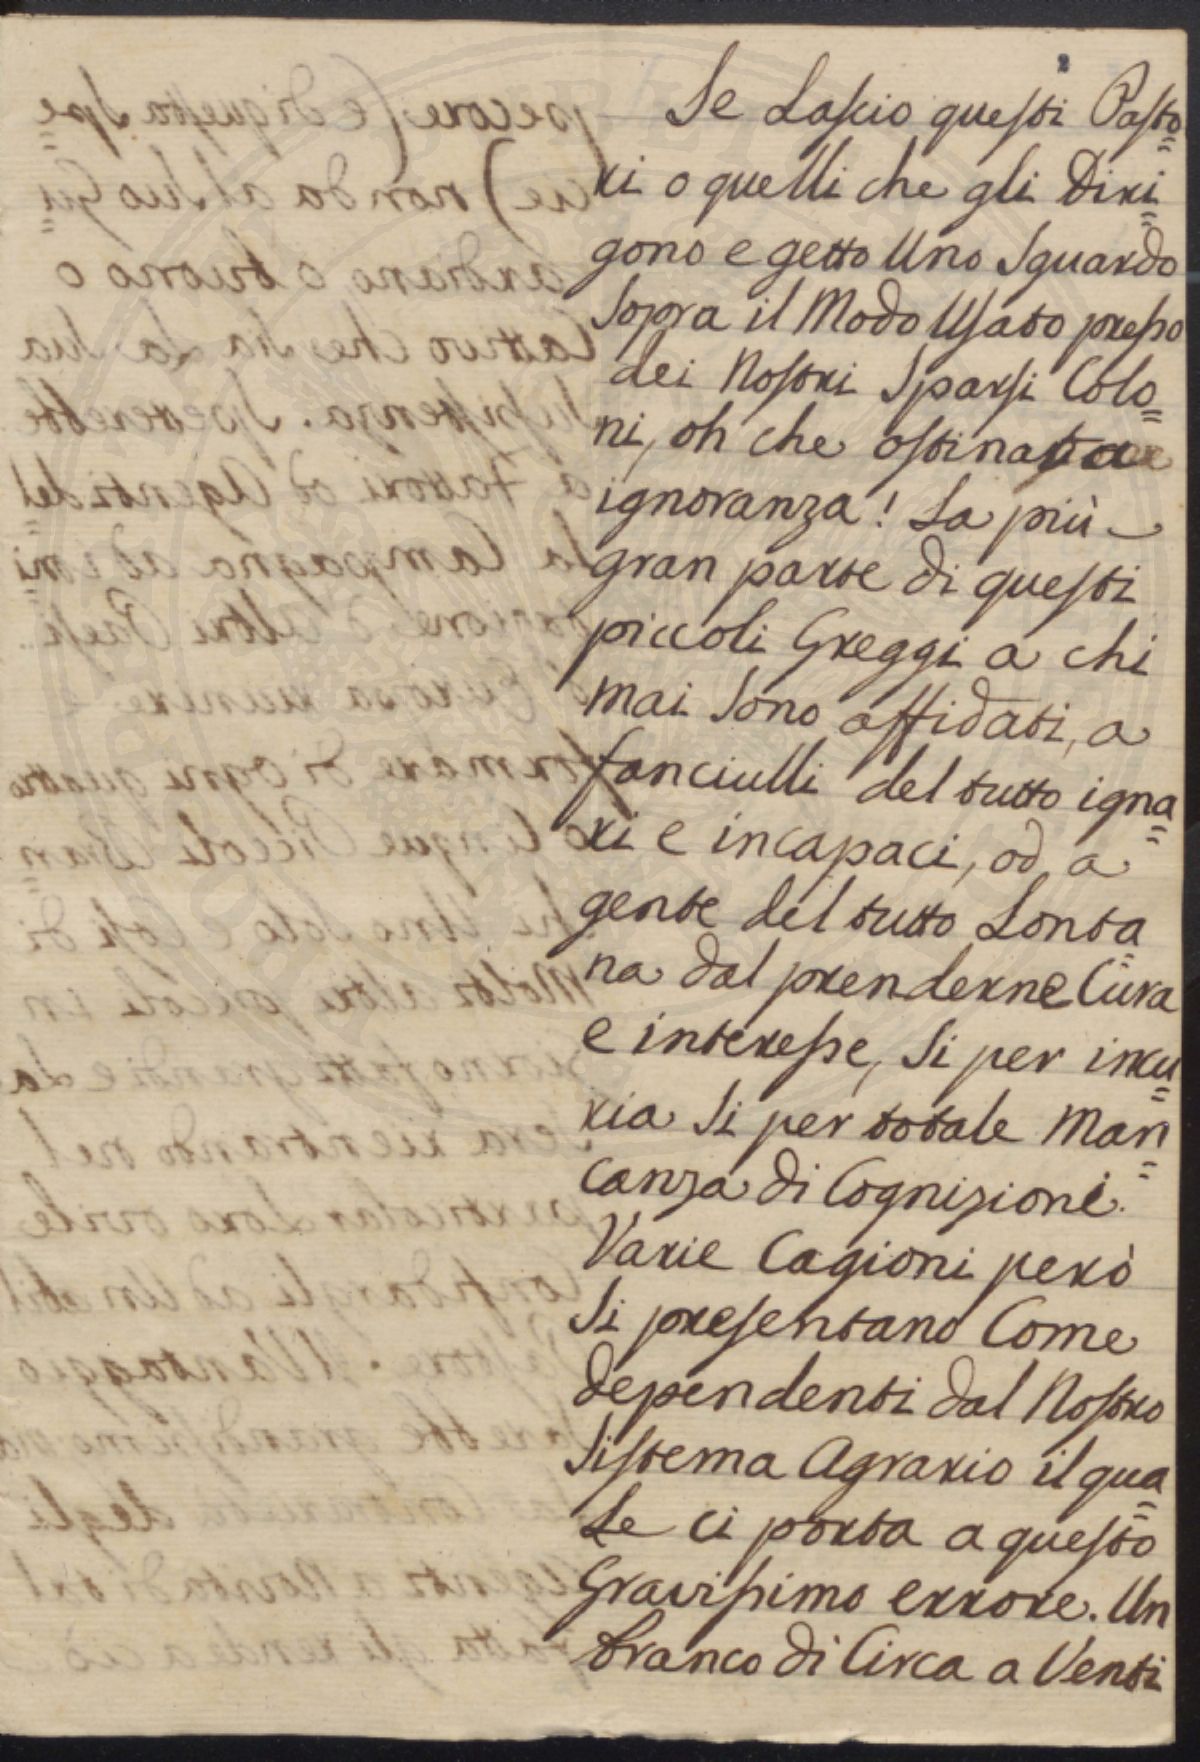 2
Se Lascio questi Pasto=
ri o quelli che gli Diri=
gono e getto Uno Sguardo
Sopra il Modo Usato presso
dei Nostri Sparsi Colo=
ni, oh che ostinata
ignoranza! La più
gran parte di questi
piccoli Greggi a chi
mai Sono affidati, a
fanciulli del tutto igna=
ri e incapaci, od a
gente del tutto Lonta=
na dal prenderne Cura
e interesse, Si per incu=
ria Si per totale Man=
canza di Cognizioni.
Varie Cagioni però
Si presentano Come
dependenti dal Nostro
Sistema Agrario il qua=
Le ci porta a questo
Gravissimo errore. Un
branco di Circa a Venti